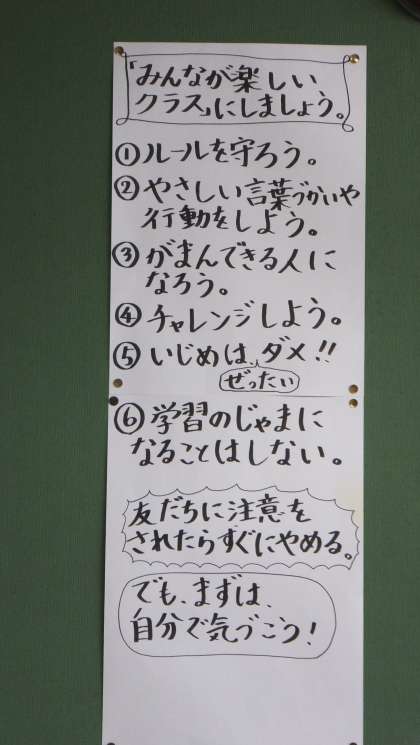 「みんなが楽しい
クラス」にしましょう。
①ルールを守ろう。
②やさしい言葉づかいや
行動をしよう。
③がまんできる人に
なろう。
④チャレンジしよう。
⑤いじめは、ダメ!!
ぜったい
⑥学習のじゃまに
なることはしない。
友だちに注意を
されたらすぐにやめる。
でも、まずは、
自分で気づこう!